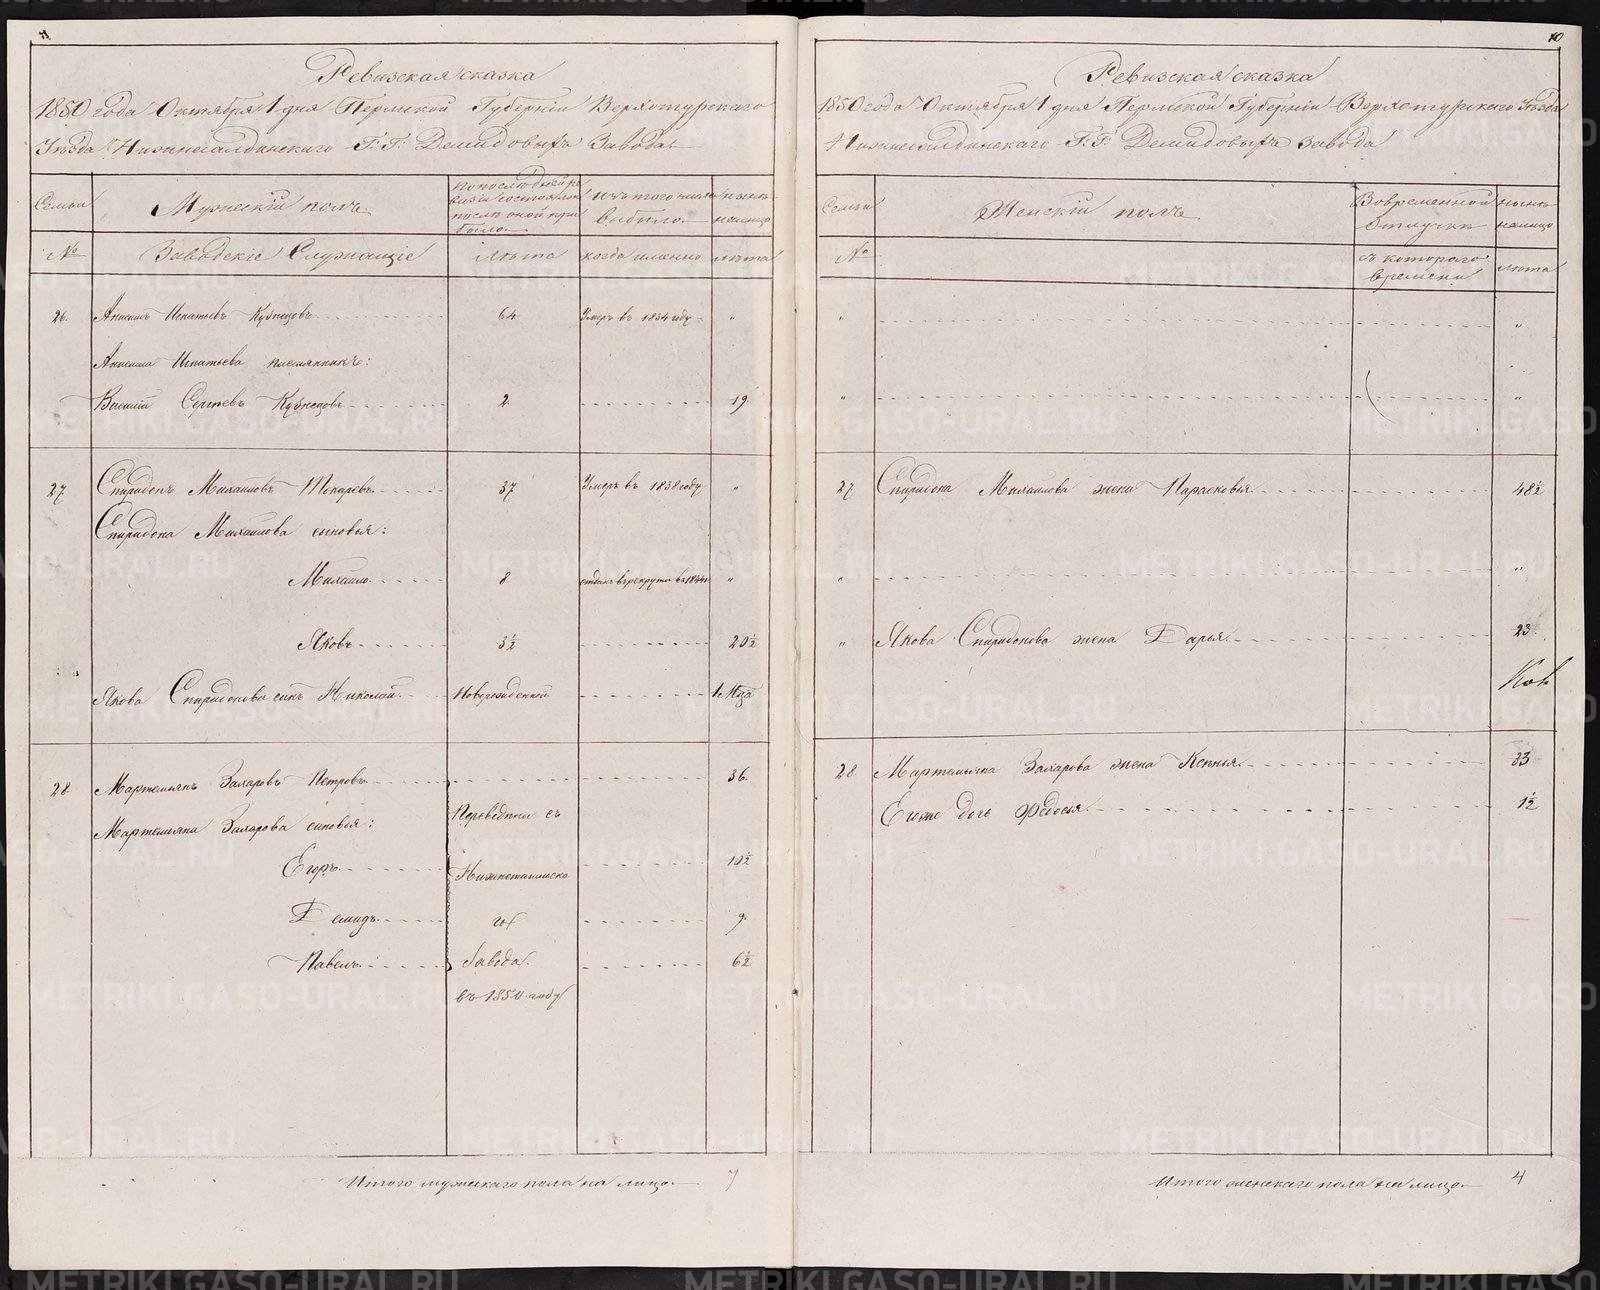 Ревизская сказка
1850 года Октября 1 дня Пермской Губернiи Верхотурскаго
Уѣзда Нижнесалдинскаго Г.Г. Демидовыхъ Завода
Семьи
Мужескiй полъ
По послѣдней ре
визiи состояло и
послѣ оной при
было
Изъ того числа
выбыло
нынѣ
налицо
№
Заводскiе Служащiе
лѣта
когда именно
лѣта
26. Анисимъ Игнатьевъ Кузнецовъ 64 Умеръ въ 1834 году "
Анисима Игнатьева племянникъ:
Василiй Сергѣевъ Кузнецовъ 2 19
27 Спиридонъ Михаиловъ Токаревъ 37 Умеръ въ 1838 году "
Спиридона Михаилова сыновья:
Михаило 8 отданъ въ рекруты въ 1844 "
Яковъ 3½ 20½
Якова Спиридонова сынъ Николай Новорожденный 1 Мца
28 Мартемьянъ Захаровъ Петровъ 36
Мартемьяна Захарова сыновья:
Переведены съ
Егоръ 10½
Нижнетагильска
Демидъ го 9
Павелъ Завода 6½
въ 1850 году
Итого мужескаго пола на лицо 7
10
Ревизская сказка
1850 года Октября 1 дня Пермской Губернiи Верхотурскаго Уѣзда
Нижнесалдинскаго Г.Г. Демидовыхъ Завода
Семьи
Женскiй полъ
Во временной
отлучкѣ
нынѣ
налицо
№
съ котораго
времени
лѣта
" "
" "
27 Спиридона Михаилова жена Парасковья 48½
" "
" Якова Спиридонова жена Дарья 23
28 Мартемьяна Захарова жена Ксенья 33
Егоже дочь Федосья 1½
Итого женскаго пола на лицо 4
METRIKI.GASO-URAL.RU